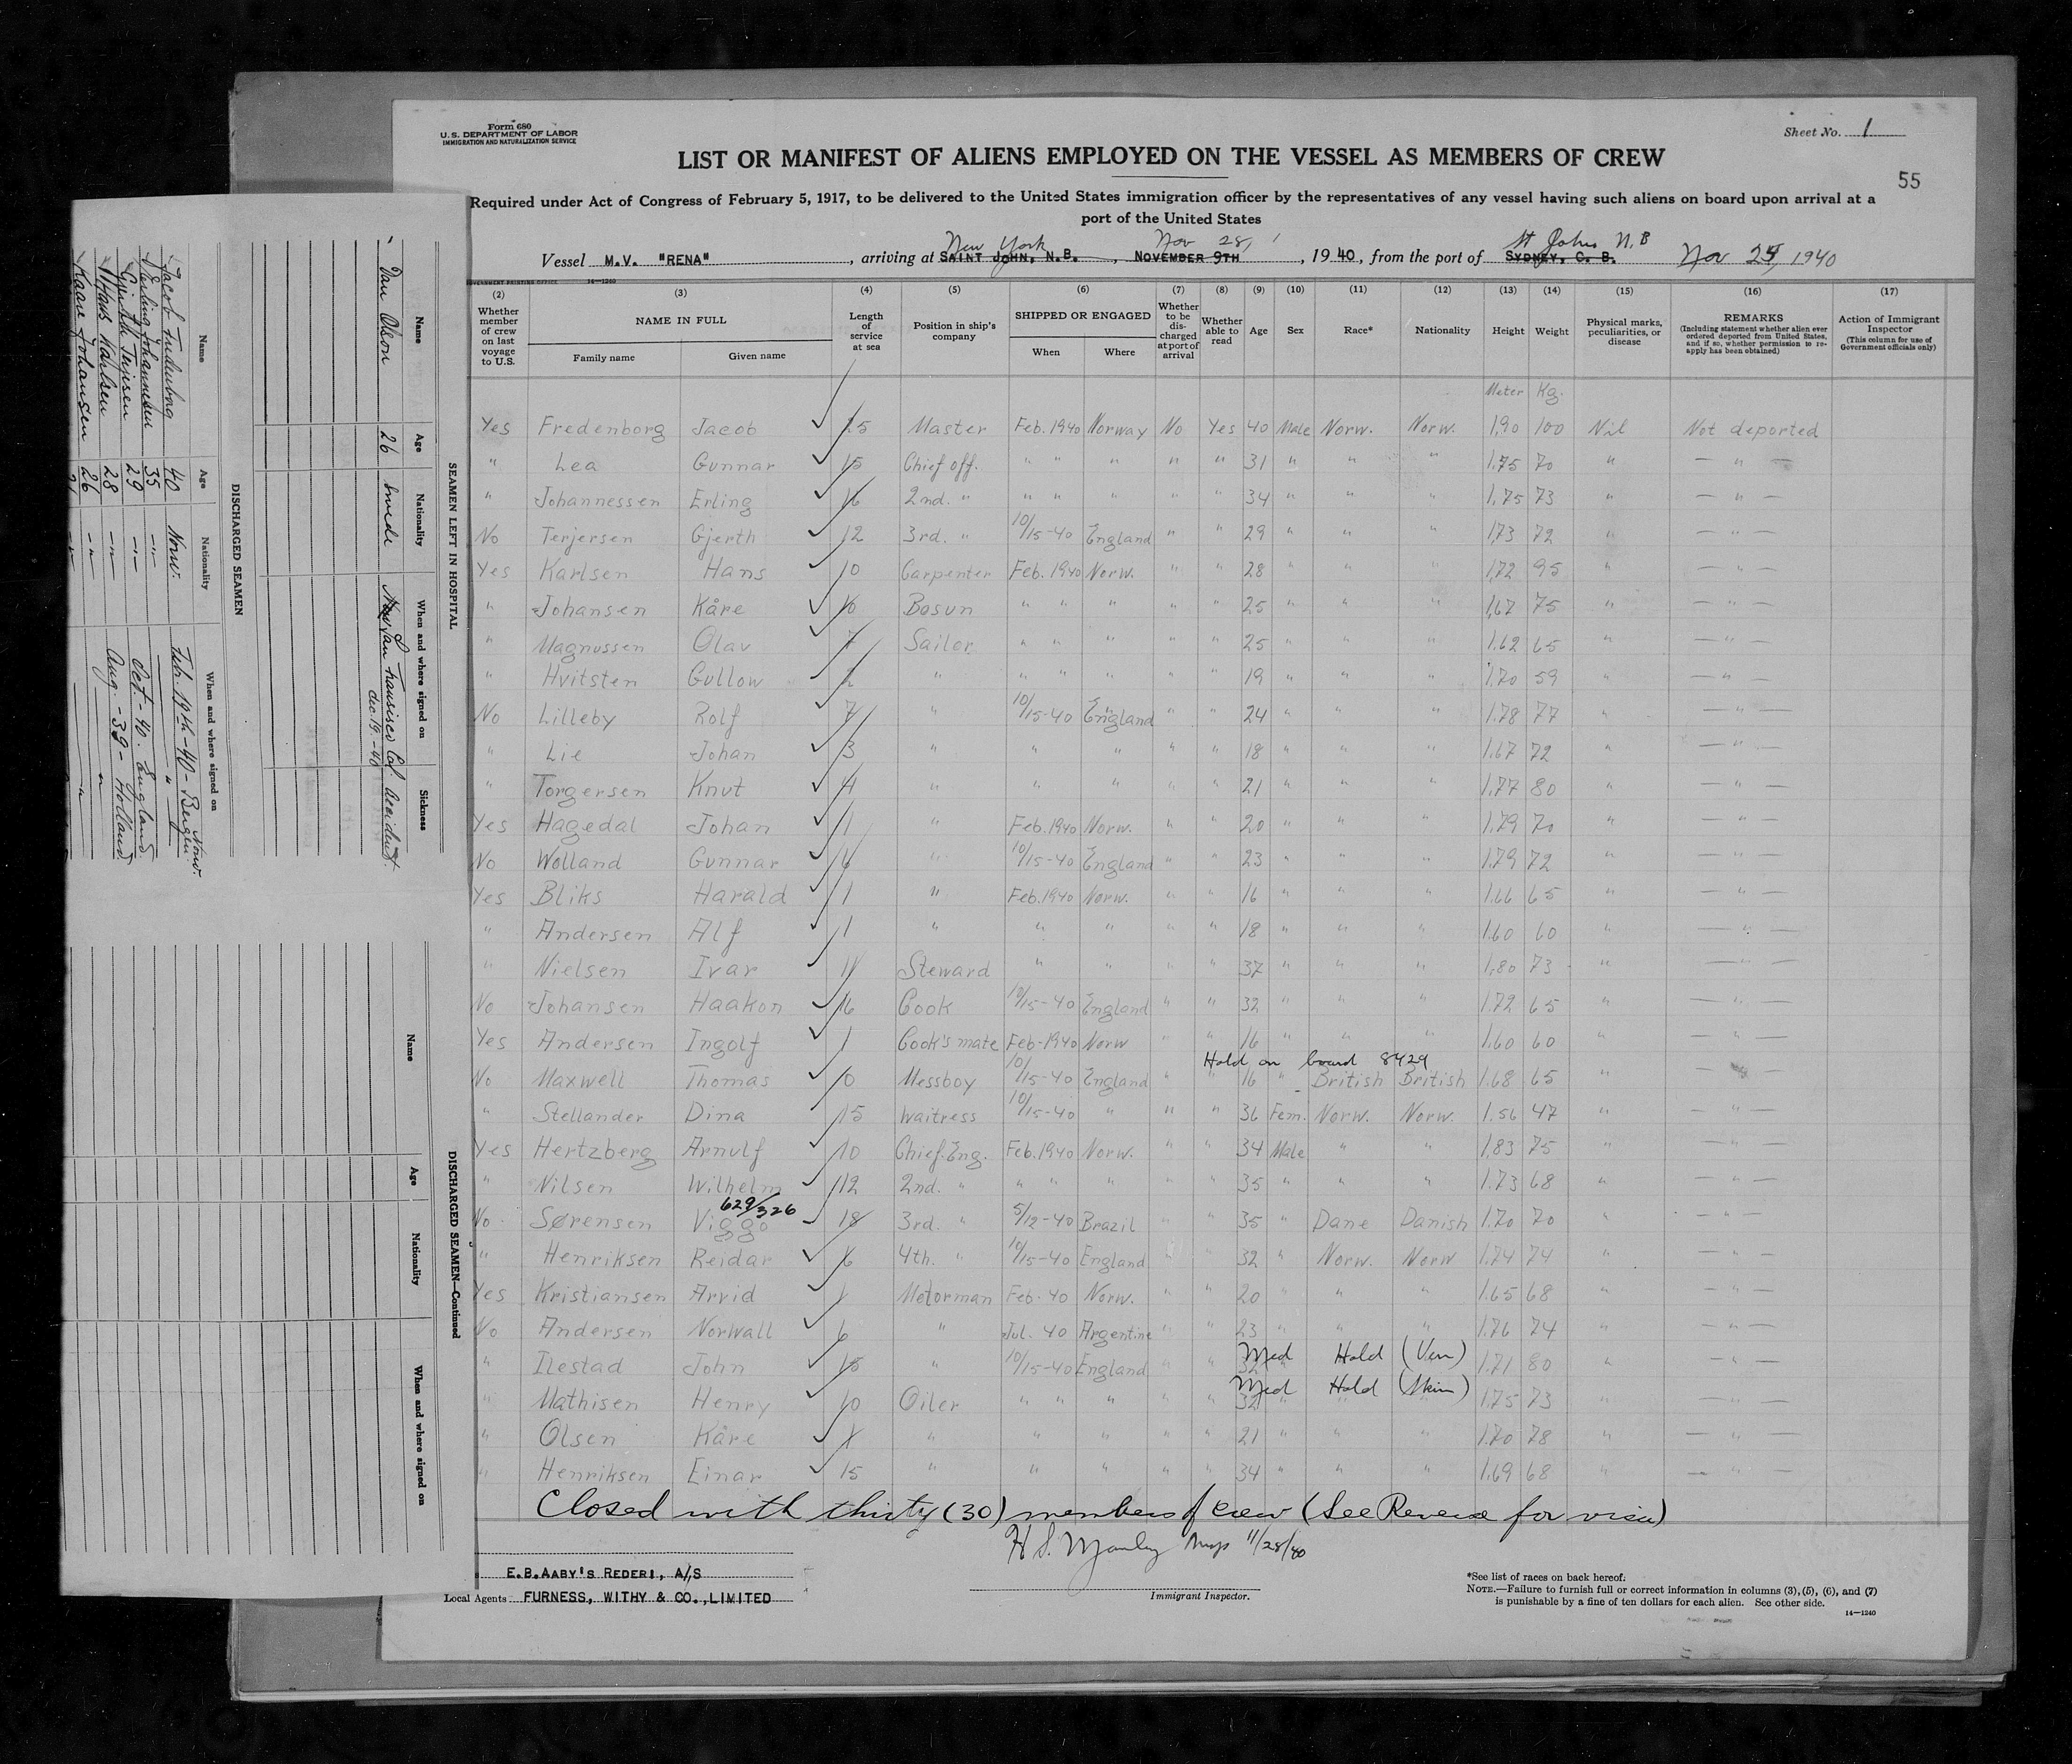 Form 680
U. S. DEPARTMENT OF LABOR
IMMIGRATION AND NATURALIZATION SERVICE
Sheet No. 1
LIST OR MANIFEST OF ALIENS EMPLOYED ON THE VESSEL AS MEMBERS OF CREW
55
Required under Act of Congress of February 5, 1917, to be delivered to the United States immigration officer by the representatives of any vessel having such aliens on board upon arrival at a
port of the United States
New York Nov 28, St John N.B
Vessel M.V. "RENA", arriving at SAINT JOHN, N.B., NOVEMBER 9TH, 1940, from the port of SYDNEY, C. B. Nov 25, 1940
GOVERNMENT PRINTING OFFICE 14—1240
(2) (3) (4) (5) (6) (7) (8) (9) (10) (11) (12) (13) (14) (15) (16) (17)
Whether member of crew on last voyage to U.S.
NAME IN FULL
Family name Given name
Length of service at sea
Position in ship's company
SHIPPED OR ENGAGED
When Where
Whether to be discharged at port of arrival
Whether able to read
Age
Sex
Race*
Nationality
Height
Weight
Physical marks, peculiarities, or disease
REMARKS
(Including statement whether alien ever ordered deported from United States, and if so, whether permission to reapply has been obtained)
Action of Immigrant Inspector
(This column for use of Government officials only)
Meter Kg.
Yes Fredenborg Jacob 25 Master Feb. 1940 Norway No Yes 40 Male Norw. Norw. 1,90 100 Nil Not deported
" Lea Gunnar 15 Chief off. " " " " " 31 " " " 1.75 70 " — " —
" Johannessen Erling 16 2nd. " " " " " " 34 " " " 1,75 73 " — " —
No Terjersen Gjerth 12 3rd. " 10/15-40 England " " 29 " " " 1,73 72 " — " —
Yes Karlsen Hans 10 Carpenter Feb. 1940 Norw. " " 28 " " " 1,72 95 " — " —
" Johansen Kåre 10 Bosun " " " " " 25 " " " 1,67 75 " — " —
" Magnussen Olav 7 Sailor " " " " " 25 " " " 1.62 65 " — " —
" Hvitsten Gullow 2 " " " " " 19 " " " 1.70 59 " — " —
No Lilleby Rolf 7 " 10/15-40 England " " 24 " " " 1.78 77 " — " —
" Lie Johan 3 " " " " " 18 " " " 1.67 72 " — " —
" Torgersen Knut 4 " " " " " 21 " " " 1.77 80 " — " —
Yes Hagedal Johan 1 " Feb. 1940 Norw. " " 20 " " " 1.79 70 " — " —
No Wolland Gunnar 6 " 10/15-40 England " " 23 " " " 1.79 72 " — " —
Yes Bliks Harald 1 " Feb. 1940 Norw. " " 16 " " " 1.66 65 " — " —
" Andersen Alf 1 " " " " " 18 " " " 1.60 60 " — " —
" Nielsen Ivar 11 Steward " " " " 37 " " " 1,80 73 " — " —
No Johansen Haakon 16 Cook 10/15-40 England " " 32 " " " 1.72 65 " — " —
Yes Andersen Ingolf 1 Cook's mate Feb-1940 Norw " " 16 " " " 1.60 60 " — " —
Hold on board 8429
No Maxwell Thomas 0 Messboy 10/15-40 England " " 16 " British British 1.68 65 " — " —
" Stellander Dina 15 Waitress 10/15-40 " " " 36 Fem. Norw. Norw. 1.56 47 " — " —
Yes Hertzberg Arnulf 10 Chief.Eng. Feb.1940 Norw. " " 34 Male " " 1,83 75 " — " —
" Nilsen Wilhelm 12 2nd. " " " " " " 35 " " " 1.73 68 " — " —
629/326
No Sørensen Viggo 18 3rd. " 5/12-40 Brazil " " 35 " Dane Danish 1.70 70 " — " —
" Henriksen Reidar 6 4th. " 10/15-40 England " " 32 " Norw. Norw 1.74 74 " — " —
Yes Kristiansen Arvid 1 Motorman Feb. 40 Norw. " " 20 " " " 1.65 68 " — " —
No Andersen Norwall 6 " Jul. 40 Argentine " " 23 " " " 1.76 74 " — " —
" Ilestad John 15 " 10/15-40 England " " 32 Med Hold (Ven) 1.71 80 " — " —
" Mathisen Henry 10 Oiler " " " " " 32 Med Hold (Skin) 1.75 73 " — " —
" Olsen Kåre 1 " " " " " 21 " " " 1.70 78 " — " —
" Henriksen Einar 15 " " " " " 34 " " " 1.69 68 " — " —
Closed with thirty (30) members of crew (See Reverse for visa)
H S. Manley Insp 11/28/40
E.B.AABY'S REDERI, A/S
Local Agents FURNESS, WITHY & CO.,LIMITED
Immigrant Inspector.
*See list of races on back hereof.
NOTE.—Failure to furnish full or correct information in columns (3), (5), (6), and (7)
is punishable by a fine of ten dollars for each alien. See other side.
14—1240
SEAMEN LEFT IN HOSPITAL
Name Age Nationality When and where signed on Sickness
Dan Olson 26 Swede San Fransisco Cal. Accident.
dec 19-40
DISCHARGED SEAMEN
Name Age Nationality When and where signed on
Jacob Fredenborg 40 Norw. Feb. 19th-40 - Bergen Norw.
Erling Johannesen 35 -"- "
Gjerth Terjesen 29 -"- Oct-40. England
Hans Karlsen 28 -"- Aug.-39- Holland
Kaare Johansen 26 -"- "
DISCHARGED SEAMEN—Continued
Name Age Nationality When and where signed on